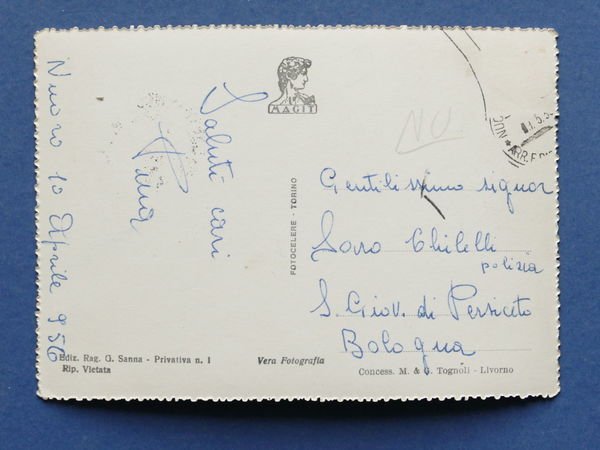 Nuoro 10 Aprile 956
Saluti cari
Pina
MAGIT
NU
FOTOCELERE - TORINO
Gentilissimo signor
Saro Chilelli
polizia
S. Giov. di Persiceto
Bologna
Ediz. Rag. G. Sanna - Privativa n. 1
Rip. Vietata
Vera Fotografia
Concess. M. & G. Tognoli - Livorno